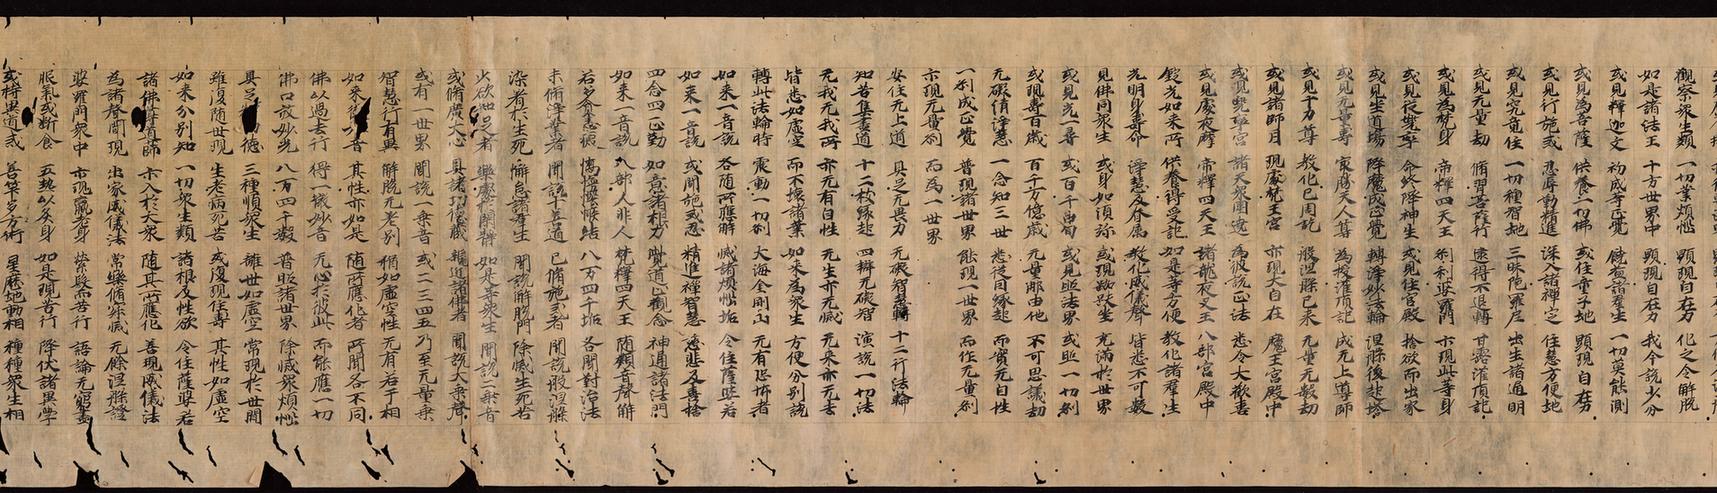 觀察衆生類 一切業煩惱 顯現自在力 化之令解脫
如是諸法王 十方世界中 顯現自在力 我今說少分
或見釋迦文 初成等正覺 饒益諸羣生 一切莫能測
或見為菩薩 供養一切佛 或住童子地 顯現自在力
或見行施戒 忍辱動精進 深入諸禪定 住慧方便地
或見究竟住 一切種智地 三昧陁羅尼 出生諸通明
或見无量劫 脩習菩薩行 逮得不退轉 甘露灌頂記
或見為梵身 帝釋四天王 刹利婆羅門 示現此等身
或見從兜率 命終降神生 或見住宮殿 捨欲而出家
或見坐道場 降魔成正覺 轉淨妙法輪 涅槃後起塔
或見无量壽 最勝天人尊 為授灌頂記 成无上導師
或見十力尊 教化已周訖 般涅槃已來 无量无數劫
或見諸師月 現處梵王宮 亦現大自在 魔王宮殿中
或現兜率宮 諸天衆圍遶 為彼說正法 悉令大歡喜
或見處夜摩 帝釋四天王 諸龍夜叉王 八部宮殿中
錠光如来所 供養得受記 如是等方便 教化諸羣生
光明身壽命 淨慧及眷属 教化威儀聲 皆悉不可數
見佛同衆生 或身如須弥 或現跏趺坐 充滿於世界
或見光一尋 或百千由旬 或見照法界 或照一切刹
或現壽百歲 百千万億歲 无量那由他 不可思議劫
无礙侑淨慧 一念知三世 悉從因緣起 而實无自性
一刹成正覺 普現諸世界 能現一世界 而作无量刹
示現无量刹 而為一世界
安住无上道 具足无畏力 无礙智慧轉 十二行法輪
知苦集盡道 十二枝緣起 四辯无礙智 演說一切法
无我无我所 亦无有自性 无生亦无滅 无来亦无去
皆悉如虛空 而不壞諸業 如来為衆生 方便分別說
轉此法輪時 震動一切刹 大海金剛山 无有恐怖者
如来一音說 各随所應解 滅諸煩惱垢 令住薩婆若
如来一音說 或聞施或忍 精進禪智慧 慈悲及喜捨
四念四正勤 如意諸根力 覺道止觀念 神通諸法門
如来一音說 八部人非人 梵釋四天王 随類音聲解
若多貪恚癡 憍慢慳嫉結 八万四千垢 各聞對治法
未脩淨業者 聞說十善道 已脩施戒者 聞說般涅槃
染著於生死 懈怠諸羣生 聞說解脫門 除滅生死苦
少欲知足者 樂處 如是等衆生 聞說二乘音
或脩廣大心 具諸功德藏 親近諸佛者 聞說大乘聲
或有一世界 聞說一乘音 或二三四五 乃至无量乘
智慧行有異 解脫无差別 猶如虛空性 无有若干相
如来 音 其性亦如是 随所應化者 所聞各不同
佛以過去行 得一微妙音 无心於彼此 而能應一切
佛口放妙光 八万四千數 普照諸世界 除滅衆煩惱
具足 德 三種順衆生 離世如虛空 常現於世間
雖復随世現 生老病死苦 或復現住壽 其性如虛空
如来分別知 一切衆生類 諸根及性欲 令住薩婆若
諸佛 導師 示入於大衆 随其所應化 善現威儀法
為諸聲聞現 出家威儀法 常樂脩寂滅 无餘涅槃證
婆羅門衆中 示現羸老身 縈髮而苦行 語論无窮盡
服氣或斷食 五熱以炙身 如是現苦行 降伏諸異學
或持 道戒 善策多方術 星歷地動相 種種衆生相